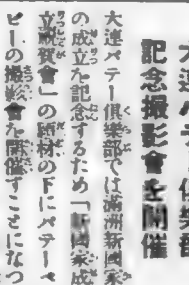 記念撮影會を開催
大連パテー倶樂部では滿洲新國家
の成立を記念するため「新國家成
立祝賀會」の題材の下にパテーベ
ビーの撮影會を開催することになつ